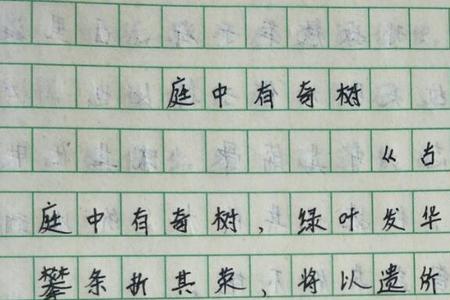 庭中有奇树
《古
庭中有奇树，绿叶发华
攀条折其荣，将以遗所